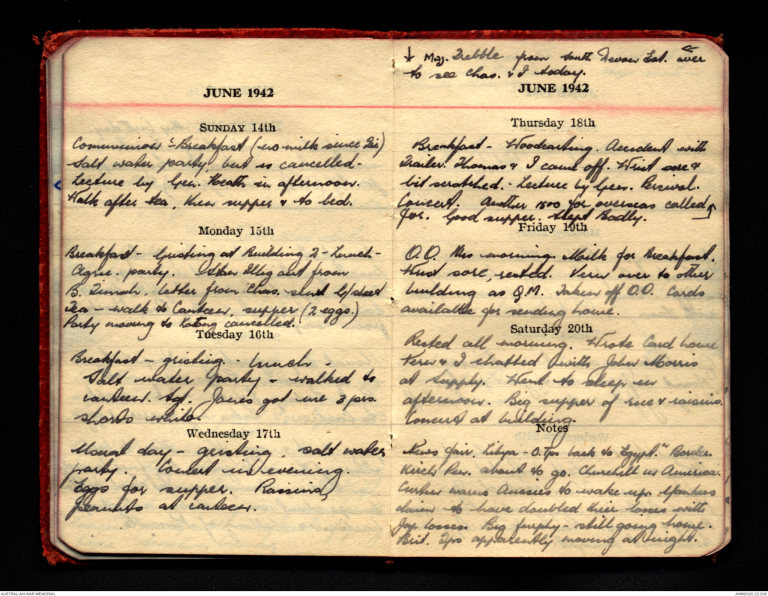 JUNE 1942
SUNDAY 14th
Communion & Breakfast (no milk since Tues)
Salt water party, but is cancelled -
Lecture by Gen. Heath in afternoon.
Walk after tea, then supper & to bed.
Monday 15th
Breakfast - Gristing at Building 2 - Lunch -
Agric. party.
letter from Chas.
Tea - walk to Canteen, supper (2 eggs.)
Party moving to Katong cancelled.
Tuesday 16th
Breakfast - gristing - Lunch -
Salt water party - walked to
canteen. Sgt. Jones got me 3 prs.
shorts white
Wednesday 17th
Usual day - gristing, salt water
party. Concert in evening.
Eggs for supper. Raisins,
peanuts at canteen.
↓ Maj. Trebble from South over
to see Chas. & I today.
JUNE 1942
Thursday 18th
Breakfast - Woodcarting. Accident with
Trailer. Thomas & I came off. Wrist sore &
bit scratched. - Lecture by Gen. Percival.
Concert. Another 1500 for overseas called
for. Good supper. Slept Badly.
Friday 19th
O.O. this morning. Milk for Breakfast.
Wrist sore, rested. Vern over to other
building as Q.M. Taken off O.O. Cards
available for sending home.
Saturday 20th
Rested all morning. Wrote Card home
Vern & I chatted with John Morris
at Supply. Went to sleep in
afternoon. Big supper of rice & raisins.
Concert at building.
Notes
News fair, Libya - O. Tps back to Egypt. Border.
Kirch Rev. about to go. Churchill in America.
Curtin warns Aussies to wake up. Yankees
claim to have doubled their losses with
Jap losses. Big furphy - still going home.
Brit. Tps apparently moving at night.
AUSTRALIAN WAR MEMORIAL